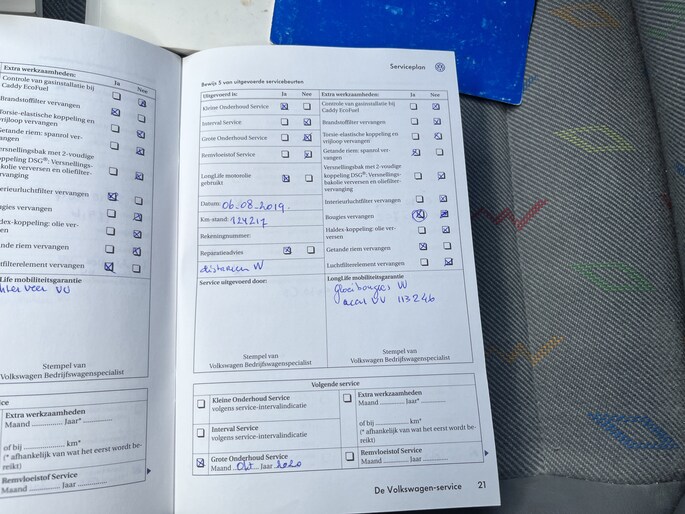 Extra werkzaamheden: Ja Nee
Controle van gasinstallatie bij
Caddy EcoFuel
Brandstoffilter vervangen
Torsie-elastische koppeling en
vrijloop vervangen
Getande riem: spanrol ver-
vangen
ersnellingsbak met 2-voudige
oppeling DSG®: Versnellings-
akolie verversen en oliefilter-
ervanging
terieurluchtfilter vervangen
ougies vervangen
ldex-koppeling: olie ver-
rsen
nde riem vervangen
tfilterelement vervangen
Life mobiliteitsgarantie
veer VV
Stempel van
Volkswagen Bedrijfswagenspecialist
ice
Extra werkzaamheden
Maand ............ Jaar*............
of bij ................ km*
(* afhankelijk van wat het eerst wordt be-
reikt)
Remvloeistof Service
Maand ............ Jaar ............
Serviceplan
Bewijs 5 van uitgevoerde servicebeurten
Uitgevoerd is: Ja Nee
Kleine Onderhoud Service
Interval Service
Grote Onderhoud Service
Remvloeistof Service
LongLife motorolie
gebruikt
Datum: 06-08-2019.
Km-stand: 124217
Rekeningnummer:
Reparatieadvies
Service uitgevoerd door:
Stempel van
Volkswagen Bedrijfswagenspecialist
Extra werkzaamheden: Ja Nee
Controle van gasinstallatie bij
Caddy EcoFuel
Brandstoffilter vervangen
Torsie-elastische koppeling en
vrijloop vervangen
Getande riem: spanrol ver-
vangen
Versnellingsbak met 2-voudige
koppeling DSG®: Versnellings-
bakolie verversen en oliefilter-
vervanging
Interieurluchtfilter vervangen
Bougies vervangen
Haldex-koppeling: olie ver-
versen
Getande riem vervangen
Luchtfilterelement vervangen
LongLife mobiliteitsgarantie
gloeibougies VV
VV 113246
Stempel van
Volkswagen Bedrijfswagenspecialist
Volgende service
Kleine Onderhoud Service
volgens service-intervalindicatie
Interval Service
volgens service-intervalindicatie
Grote Onderhoud Service
Maand Okt Jaar 2020
Extra werkzaamheden
Maand ............ Jaar*............
of bij ................ km*
(* afhankelijk van wat het eerst wordt be-
reikt)
Remvloeistof Service
Maand ............ Jaar ............
De Volkswagen-service 21